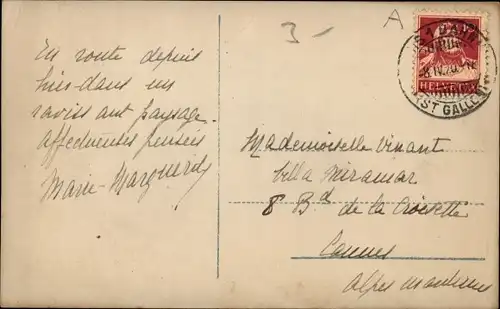 3 -
A
HELVETIA
(ST GALLEN)
En route depuis
hier dans un
ravissant paysage.
Affectueuses pensées
Marie-Marguerite
Mademoiselle Vivant
Villa Miramar
8 Bd de la Croisette
Cannes
Alpes maritimes